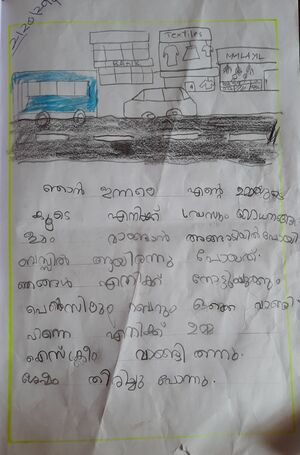 Textiles
BANK
ഞാൻ ഇന്നലെ എന്റെ ഉമ്മയുടെ
കൂടെ എനിക്ക് ഡ്രസും
വാങ്ങാൻ അങ്ങാടിയിൽ പോയി
ബസ്സിൽ ആയിരുന്നു പോയത്.
ഞങ്ങൾ എനിക്ക് നോട്ടുബുക്കും
പെൻസിലും റബറും ഒക്കെ വാങ്ങി
പിന്നെ എനിക്ക് ഉമ്മ
ഐസ്ക്രീം വാങ്ങി തന്നു.
ശേഷം തിരിച്ചു പോന്നു.